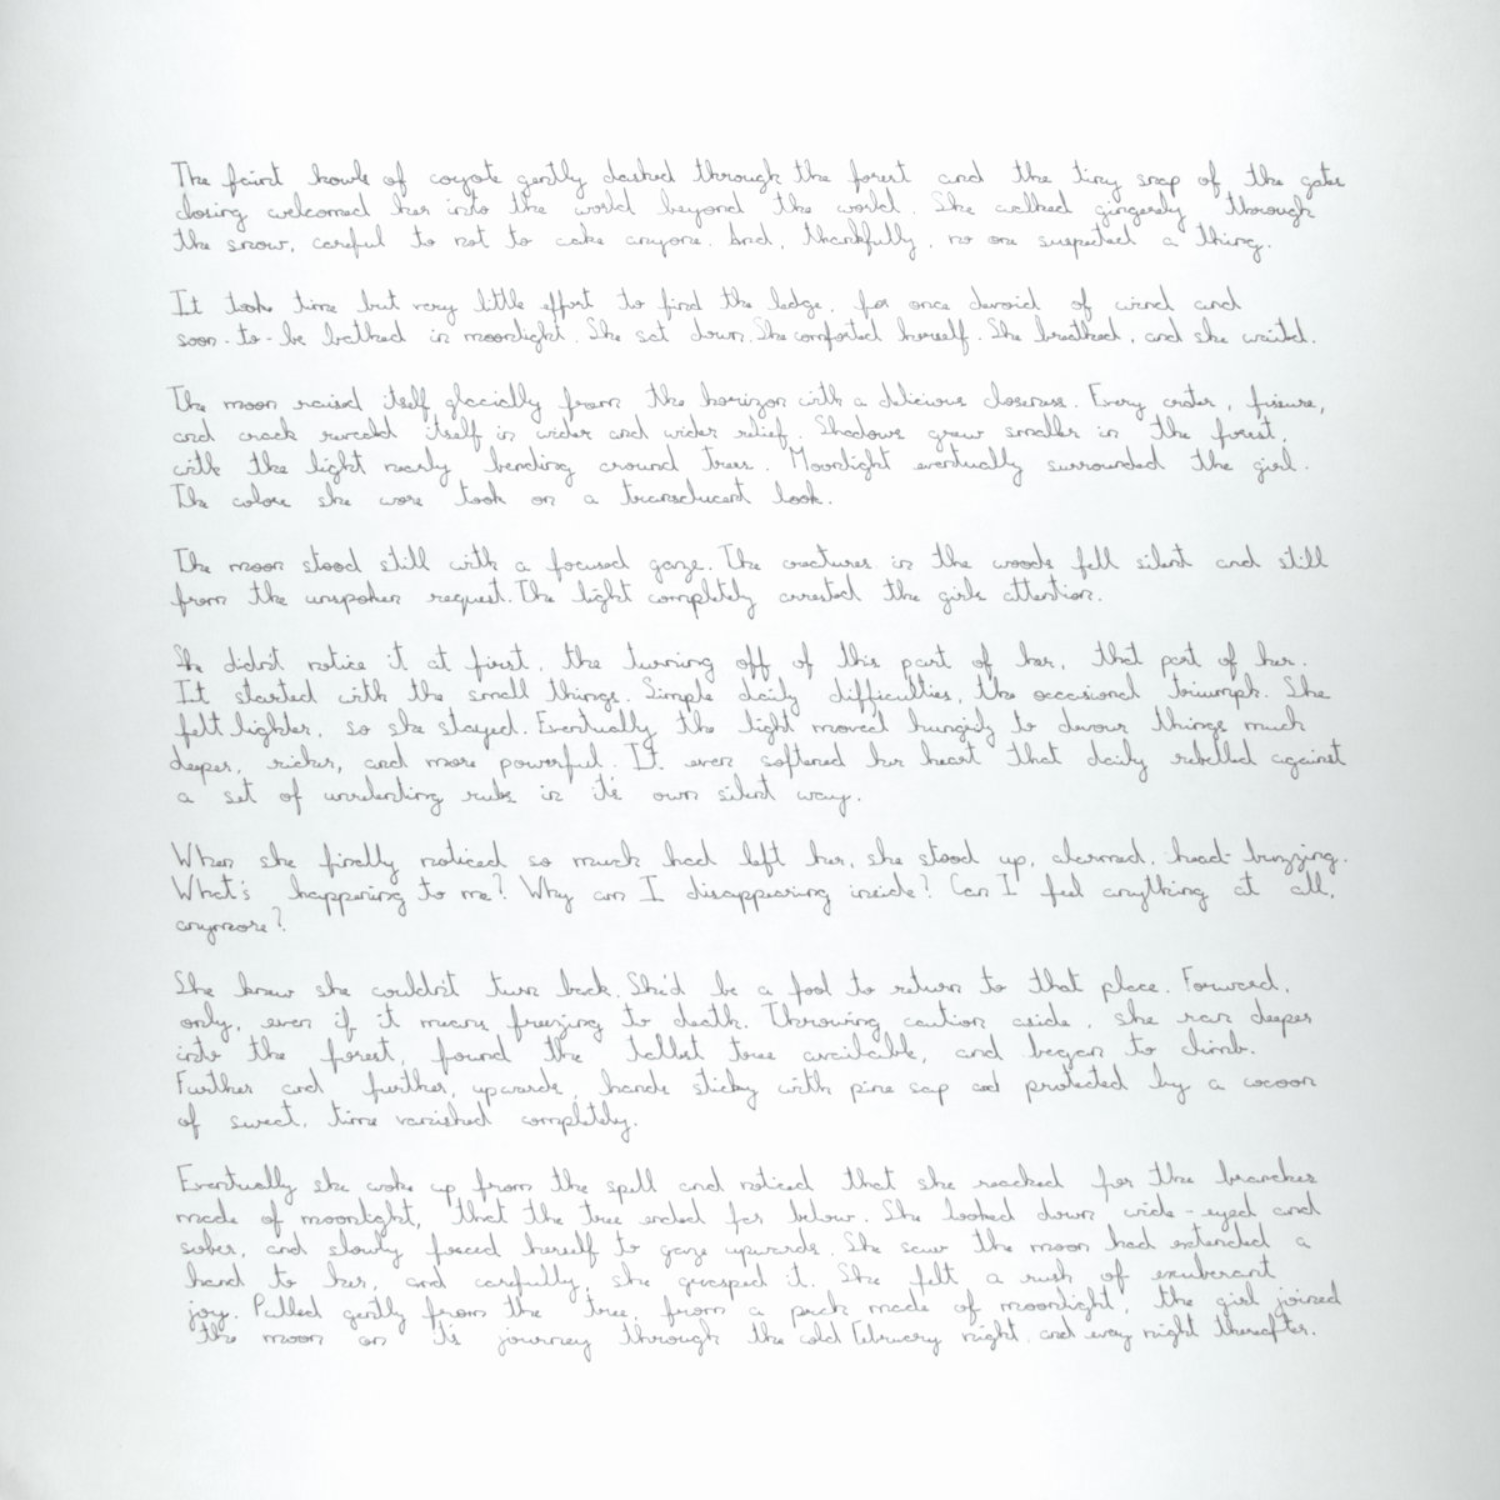 The faint howls of coyote gently dashed through the forest and the tiny snap of the gates
closing welcomed her into the world beyond the world. She walked gingerely through
the snow, careful to not to wake anyone. And, thankfully, no one suspected a thing.
It took time but very little effort to find the ledge, for once devoid of wind and
soon-to-be bathed in moonlight. She sat down. She comforted herself. She breathed, and she waited.
The moon raised itself glacially from the horizon with a delicious closeness. Every crater, fissure,
and crack revealed itself in wider and wider relief. Shadows grew smaller in the forest,
with the light nearly bending around trees. Moonlight eventually surrounded the girl.
The colors she wore took on a translucent look.
The moon stood still with a focused gaze. The creatures in the woods fell silent and still
from the unspoken request. The light completely arrested the girls attention.
She didn't notice it at first, the turning off of this part of her, that part of her.
It started with the small things. Simple daily difficulties, the occasional triumph. She
felt lighter, so she stayed. Eventually the light moved hungrily to devour things much
deeper, richer, and more powerful. It even softened her heart that daily rebelled against
a set of unrelenting rules in it's own silent way.
When she finally noticed so much had left her, she stood up, alarmed, head-buzzing.
What's happening to me? Why am I disappearing inside? Can I feel anything at all,
anymore?
She knew she couldn't turn back. She'd be a fool to return to that place. Forward,
only, even if it means freezing to death. Throwing caution aside, she ran deeper
into the forest, found the tallest tree available, and began to climb.
Further and further, upwards, hands sticky with pine sap and protected by a cocoon
of sweat, time vanished completely.
Eventually she woke up from the spell and noticed that she reached for the branches
made of moonlight, that the tree ended far below. She looked down wide-eyed and
sober, and slowly forced herself to gaze upwards. She saw the moon had extended a
hand to her, and carefully, she grasped it. She felt a rush of exuberant
joy. Pulled gently from the tree, from a perch made of moonlight, the girl joined
the moon on it's journey through the cold February night, and every night thereafter.